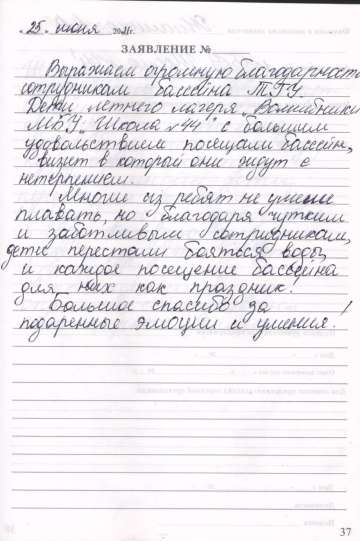 „25" июня 2021г.
ЗАЯВЛЕНИЕ №
Выражаем огромную благодарность
сотрудникам бассейна ТГУ.
Дети летнего лагеря „Волшебники"
МБУ „Школа №44" с большим
удовольствием посещали бассейн,
визит в который они ждут с
нетерпением.
Многие из ребят не умели
плавать, но благодаря чутким
и заботливым сотрудникам,
дети перестали бояться воды,
и каждое посещение бассейна
для них как праздник.
Большое спасибо за
подаренные эмоции и умения!
37